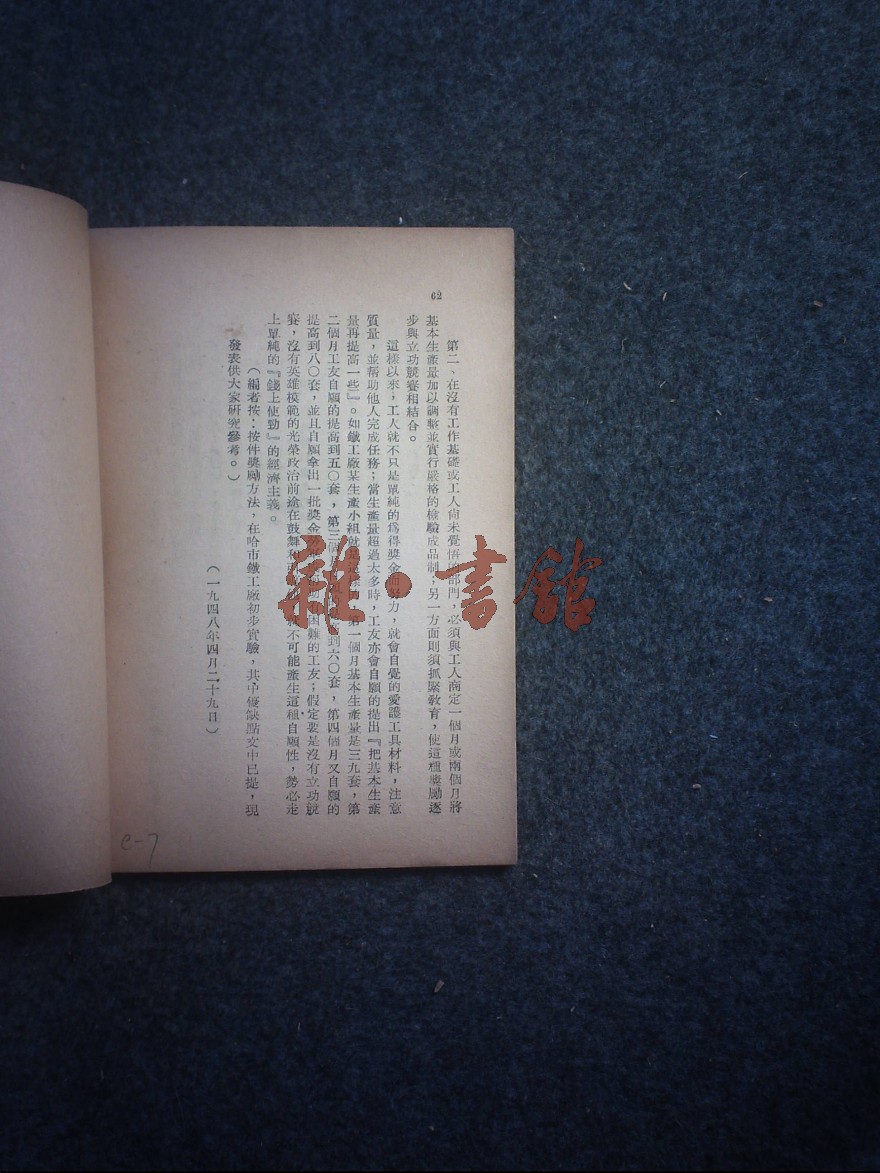 62
第二、在沒有工作基礎或工人尙未覺悟的部門，必須與工人商定一個月或兩個月將
基本生產量加以調整並實行嚴格的檢驗成品制；另一方面則須抓緊敎育，使這種獎勵逐
步與立功競賽相結合。
這樣以來；工人就不只是單純的爲得獎金而努力，就會自覺的愛護工具材料，注意
質量，並帮助他人完成任務；當生產量超過太多時，工友亦會自願的提出『把基本生產
量再提高一些』。如鐵工廠某生產小組就是這樣的，第一個月基本生產量是三九套，第
二個月工友自願的提高到五〇套，第三個月到六〇套，第四個月又自願的
提高到八〇套，並且自願拿出一批獎金困難的工友；假定要是沒有立功競
賽，沒有英雄模範的光榮政治前途在鼓舞不可能產生這種自願性，勢必走
上單純的『錢上使勁』的經濟主義。
（編者按：按件獎勵方法，在哈市鐵工廠初步實驗，其中優缺點文中已提，現
發表供大家硏究參考。）
（一九四八年四月二十九日）
e-7
雜·書館